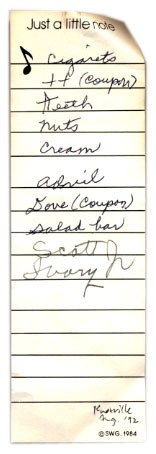 Just a little note
cigarets
tt (coupon)
teeth
nuts
cream
advil
Dove (coupon)
salad bar
Scott Jr
Ivory
Knoxville
Aug. '92
©SWG. 1984